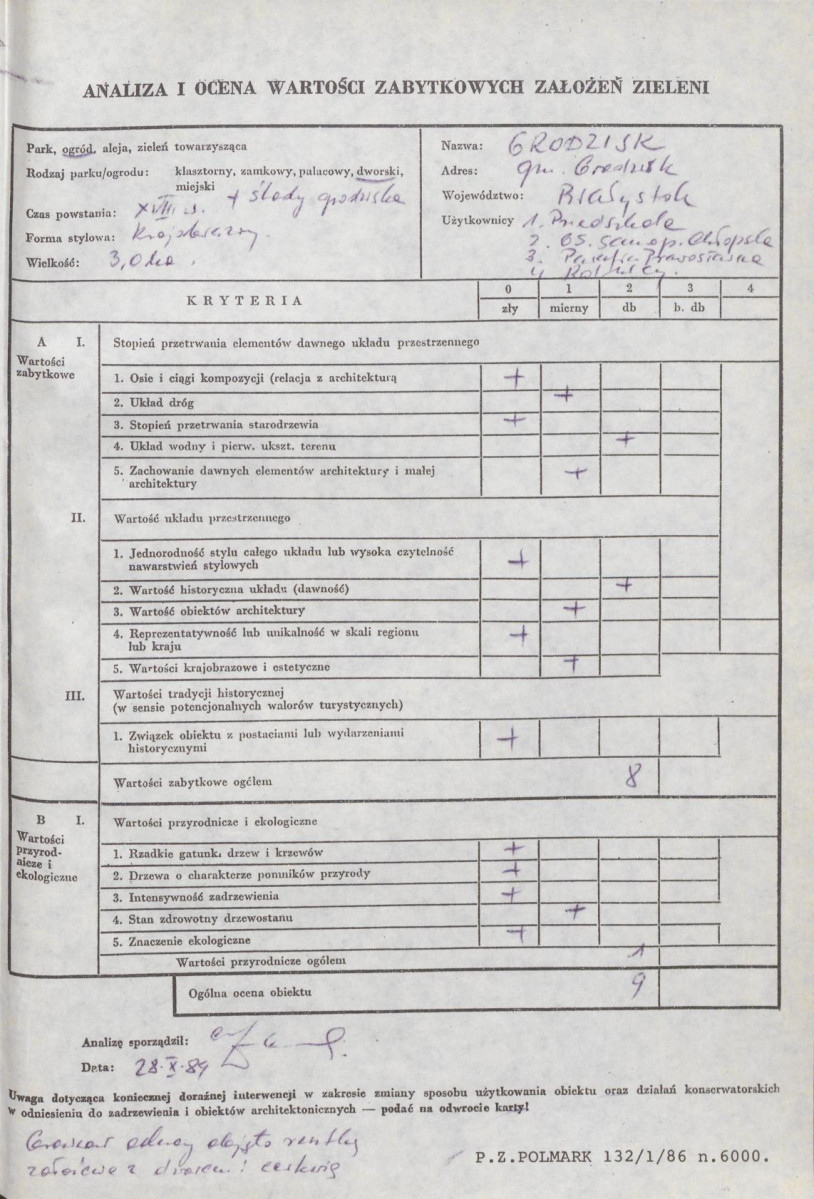 ANALIZA I OCENA WARTOŚCI ZABYTKOWYCH ZAŁOŻEŃ ZIELENI
Park, ogród, aleja, zieleń towarzysząca
Rodzaj parku/ogrodu: klasztorny, zamkowy, pałacowy, dworski,
miejski + ślady grodziska
Czas powstania: XVIII w.
Forma stylowa: Krajobrazowy.
Wielkość: 3,0 ha.
Nazwa: GRODZISK
Adres: gm. Grodzisk
Województwo: Białystok
Użytkownicy 1. Przedszkole
2. GS. Samop. Chłopska
3. Parafia Prawosławna
4. Rolnicy.
KRYTERIA
0 1 2 3 4
zły mierny db b. db
A I. Stopień przetrwania elementów dawnego układu przestrzennego
Wartości
zabytkowe
1. Osie i ciągi kompozycji (relacja z architekturą +
2. Układ dróg +
3. Stopień przetrwania starodrzewia +
4. Układ wodny i pierw. ukszt. terenu +
5. Zachowanie dawnych elementów architektury i małej
architektury +
II. Wartość układu przestrzennego
1. Jednorodność stylu całego układu lub wysoka czytelność
nawarstwień stylowych +
2. Wartość historyczna układu (dawność) +
3. Wartość obiektów architektury +
4. Reprezentatywność lub unikalność w skali regionu
lub kraju +
5. Wartości krajobrazowe i estetyczne +
III. Wartości tradycji historycznej
(w sensie potencjonalnych walorów turystycznych)
1. Związek obiektu z postaciami lub wydarzeniami
historycznymi +
Wartości zabytkowe ogółem 8
B I. Wartości przyrodnicze i ekologiczne
Wartości
przyrod-
nicze i
ekologiczne
1. Rzadkie gatunki drzew i krzewów +
2. Drzewa o charakterze pomników przyrody +
3. Intensywność zadrzewienia +
4. Stan zdrowotny drzewostanu +
5. Znaczenie ekologiczne +
Wartości przyrodnicze ogółem 1
Ogólna ocena obiektu 9
Analizę sporządził:
Data: 28.X.89
Uwaga dotycząca koniecznej doraźnej interwencji w zakresie zmiany sposobu użytkowania obiektu oraz działań konserwatorskich
w odniesieniu do zadrzewienia i obiektów architektonicznych — podać na odwrocie karty!
resztkę
z i cerkwią
P.Z.POLMARK 132/1/86 n.6000.